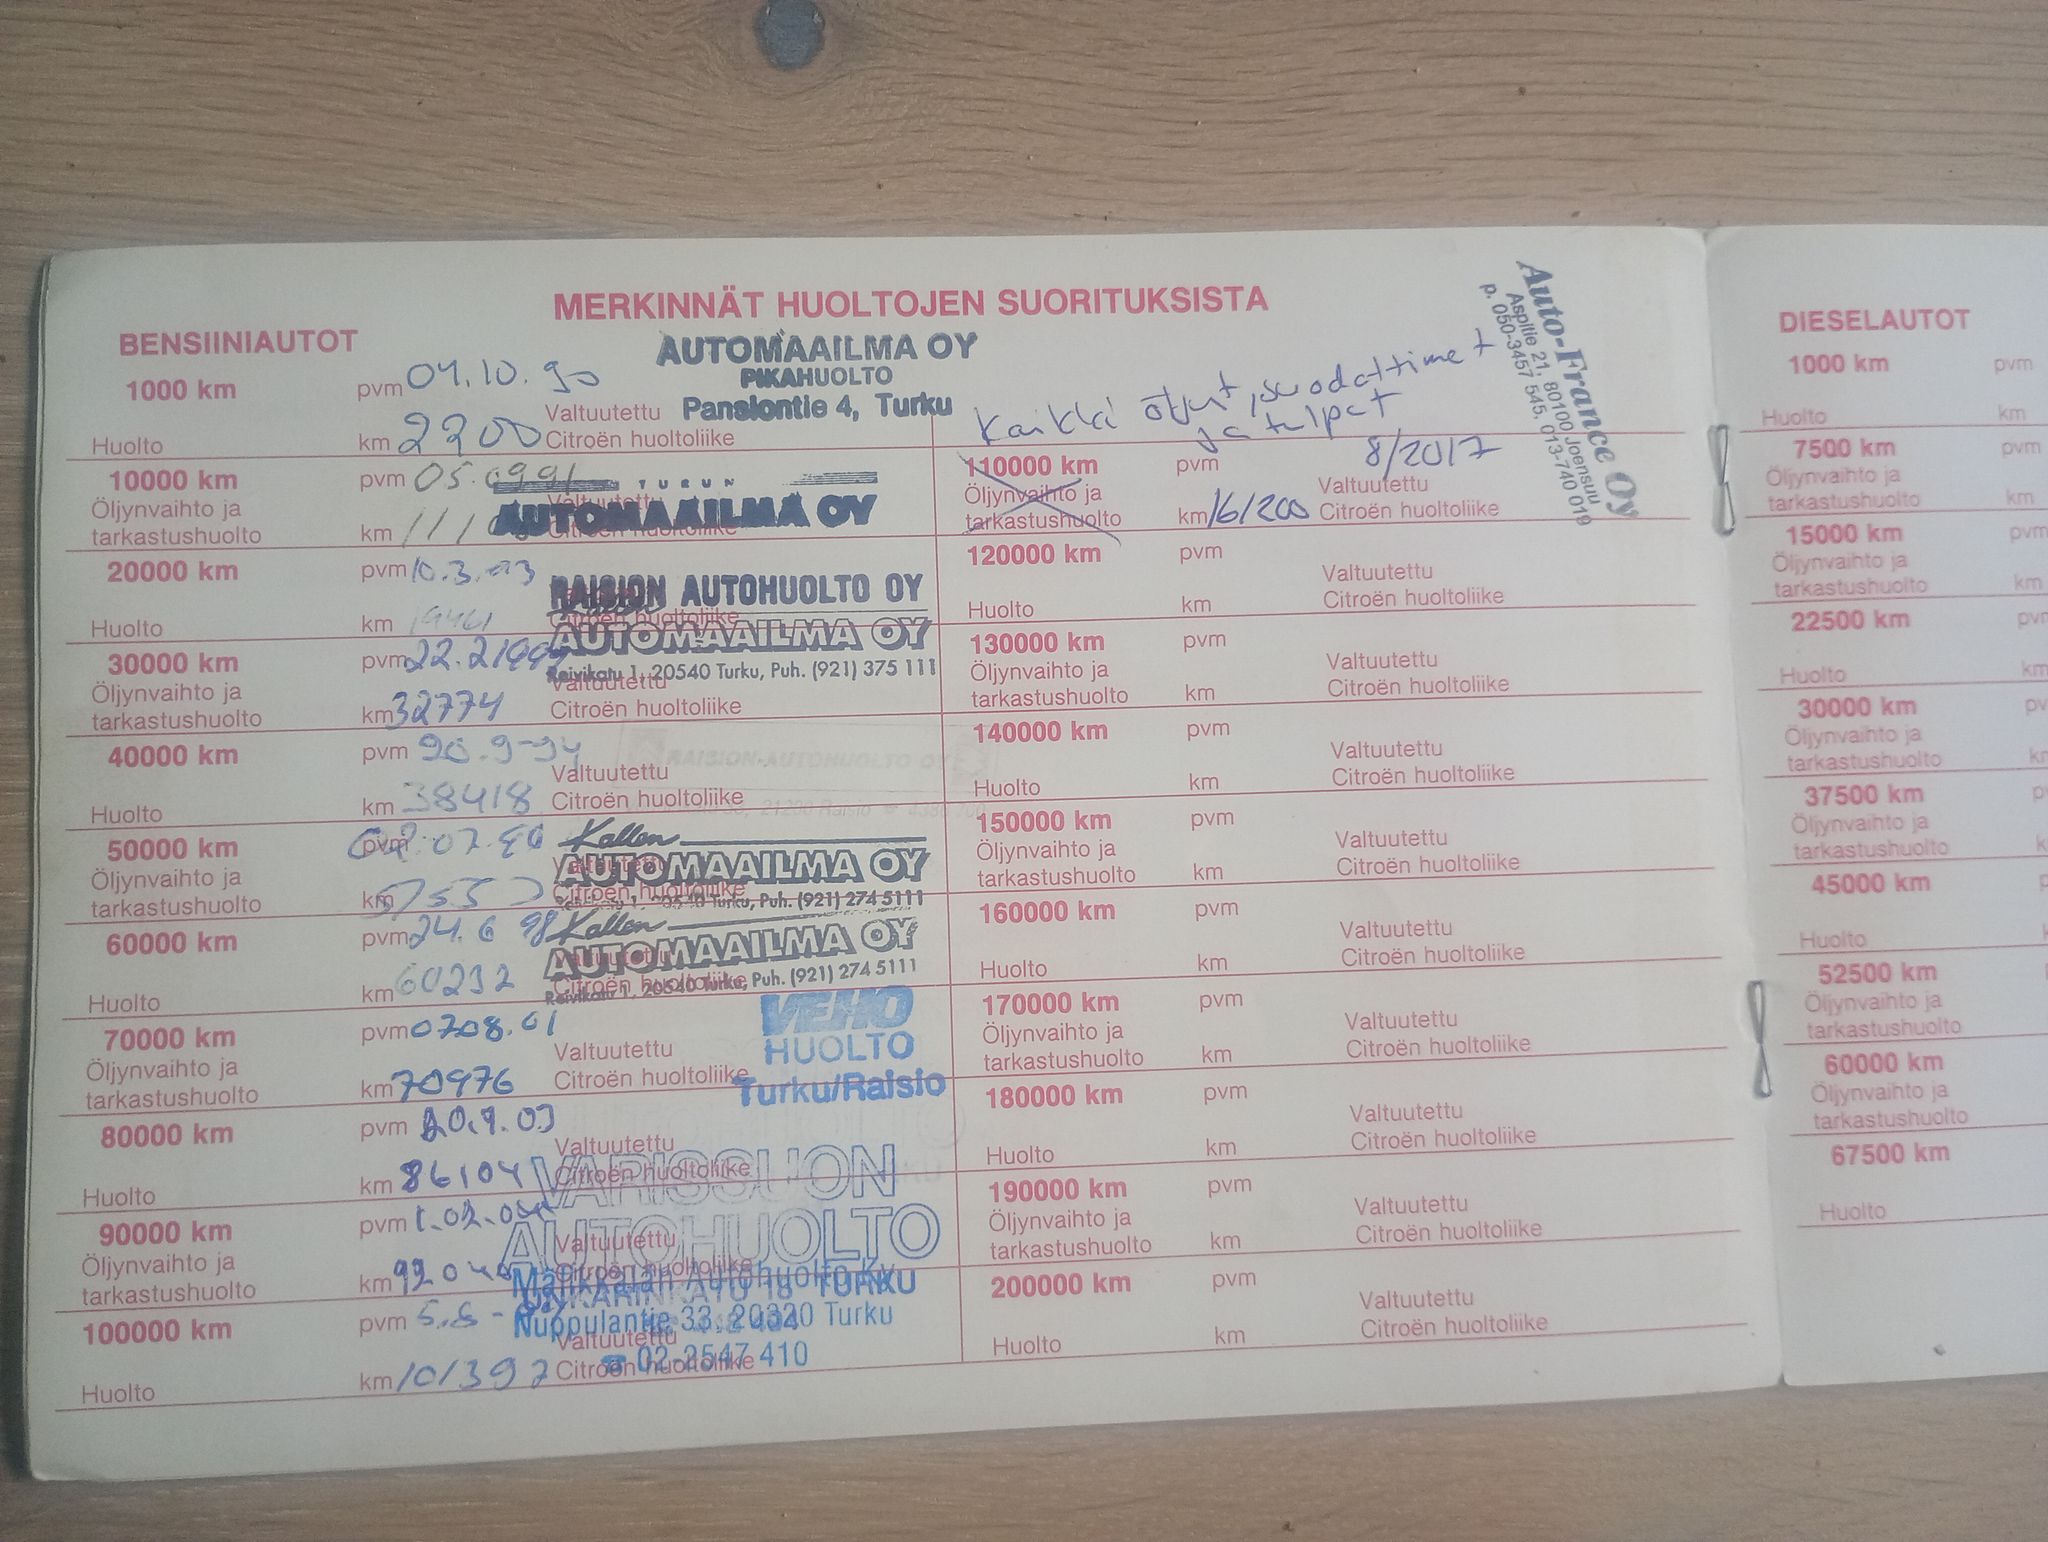 MERKINNÄT HUOLTOJEN SUORITUKSISTA
BENSIINIAUTOT
AUTOMAAILMA OY
PIKAHUOLTO
Pansiontie 4, Turku
1000 km pvm 04.10.90
Valtuutettu
Huolto km 2200 Citroën huoltoliike
10000 km pvm
TURUN
AUTOMAAILMA OY
Öljynvaihto ja
tarkastushuolto km
20000 km pvm 10.3.93
RAISION AUTOHUOLTO OY
Huolto km Citroën huoltoliike
AUTOMAAILMA OY
Reivikatu 1, 20540 Turku, Puh. (921) 375 111
30000 km pvm
Öljynvaihto ja Valtuutettu
tarkastushuolto km 32774 Citroën huoltoliike
40000 km pvm
RAISION AUTOHUOLTO OY
Valtuutettu
Huolto km 38418 Citroën huoltoliike
21200 Raisio
50000 km pvm
Kallen
AUTOMAAILMA OY
Öljynvaihto ja Valtuutettu
tarkastushuolto km Citroën huoltoliike
Reivikatu 1, 20540 Turku, Puh. (921) 274 5111
60000 km pvm 24.6 98
Kallen
AUTOMAAILMA OY
Valtuutettu
Huolto km 60232 Citroën huoltoliike
Reivikatu 1, 20540 Turku, Puh. (921) 274 5111
70000 km pvm 0708.01
VEHO
HUOLTO
Turku/Raisio
Öljynvaihto ja Valtuutettu
tarkastushuolto km 70976 Citroën huoltoliike
80000 km pvm
Valtuutettu
Huolto km 86104 Citroën huoltoliike
VARISSUON
AUTOHUOLTO
TURKU
90000 km pvm
Öljynvaihto ja Valtuutettu
tarkastushuolto km Citroën huoltoliike
Autohuolto Ky
Nuppulantie 33, 20320 Turku
☎ 02-2547 410
100000 km pvm
Valtuutettu
Huolto km 101397 Citroën huoltoliike
Kaikki öljyt, suodattimet
ja tulpat
8/2017
Auto-France Oy
Aspitie 21, 80100 Joensuu
p. 050-3457 545, 013-740 019
110000 km pvm
Öljynvaihto ja Valtuutettu
tarkastushuolto km 161200 Citroën huoltoliike
120000 km pvm
Valtuutettu
Huolto km Citroën huoltoliike
130000 km pvm
Öljynvaihto ja Valtuutettu
tarkastushuolto km Citroën huoltoliike
140000 km pvm
Valtuutettu
Huolto km Citroën huoltoliike
150000 km pvm
Öljynvaihto ja Valtuutettu
tarkastushuolto km Citroën huoltoliike
160000 km pvm
Valtuutettu
Huolto km Citroën huoltoliike
170000 km pvm
Öljynvaihto ja Valtuutettu
tarkastushuolto km Citroën huoltoliike
180000 km pvm
Valtuutettu
Huolto km Citroën huoltoliike
190000 km pvm
Öljynvaihto ja Valtuutettu
tarkastushuolto km Citroën huoltoliike
200000 km pvm
Valtuutettu
Huolto km Citroën huoltoliike
DIESELAUTOT
1000 km pvm
Huolto km
7500 km pvm
Öljynvaihto ja
tarkastushuolto km
15000 km pvm
Öljynvaihto ja
tarkastushuolto km
22500 km pvm
Huolto km
30000 km
Öljynvaihto ja
tarkastushuolto
37500 km
Öljynvaihto ja
tarkastushuolto
45000 km
Huolto
52500 km
Öljynvaihto ja
tarkastushuolto
60000 km
Öljynvaihto ja
tarkastushuolto
67500 km
Huolto